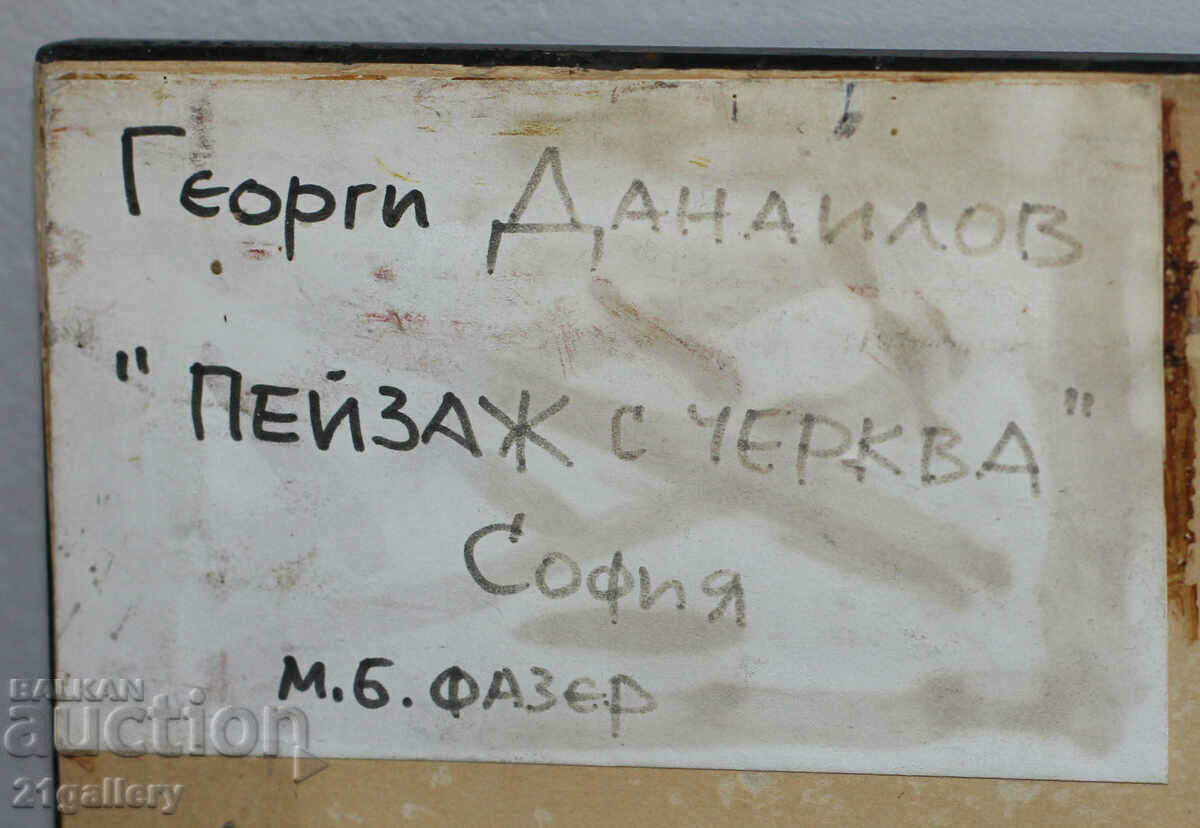 Георги Данаилов
"ПЕЙЗАЖ С ЧЕРКВА"
София
М.Б. ФАЗЕР
BALKAN
auction
21gallery